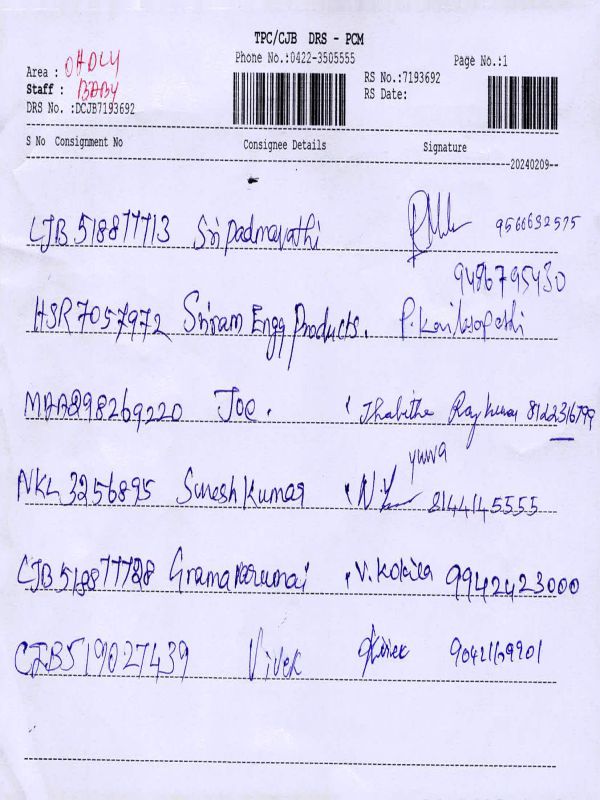 TPC/CJB DRS - PCM
Phone No.:0422-3505555 Page No.:1
Area :
Staff : BABY
RS No.:7193692
RS Date:
DRS No. :DCJB7193692
S No Consignment No Consignee Details Signature
20240209
CJB 518877713 Sri Padmavathi 9566632575
9486795430
HSR7057972 Sriram Engg Products. P. Kailasapathi
MAA898269220 Joe. 8122316799
yuva
NKL 3256895 Suresh Kumar 8144145555
CJB 518877728 V. Kokila 9942423000
CJB519027439 Vivek Vivek